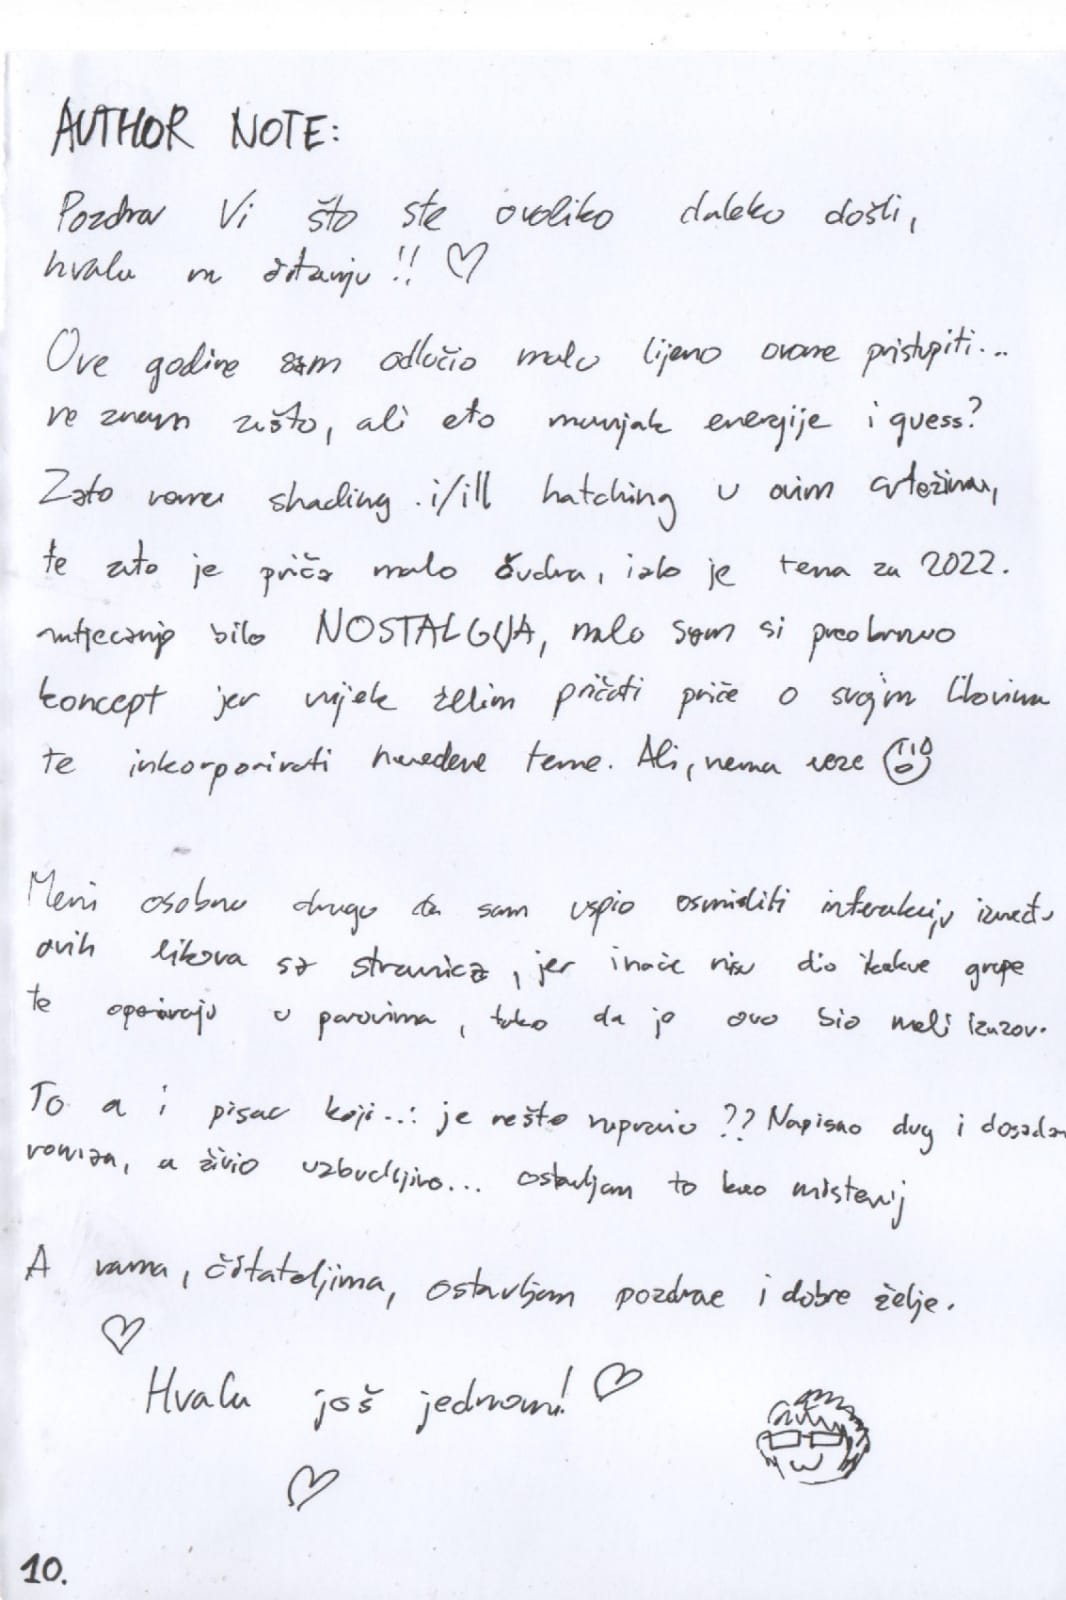 AUTHOR NOTE:
Pozdrav Vi što ste ovoliko daleko došli,
hvala na čitanju!! ♡
Ove godine sam odlučio malo lijeno ovome pristupiti...
ne znam zašto, ali eto manjak energije i guess?
Zato nema shading i/ili hatching u ovim crtežima,
te zato je priča malo čudna, iako je tema za 2022.
natjecanje bilo NOSTALGIJA, malo sam si preobrnuo
koncept jer uvijek želim pričati priče o svojim likovima
te inkorporirati navedene teme. Ali, nema veze
Meni osobno drago da sam uspio osmisliti interakciju između
ovih likova sa stranica, jer inače nisu dio ikakve grupe
te operiraju u parovima, tako da je ovo bio mali izazov.
To a i pisac koji... je nešto napravio?? Napisao dug i dosadan
roman, a živio uzbudljivo... ostavljam to kao misterij
A vama, čitateljima, ostavljam pozdrave i dobre želje.
♡
Hvala još jednom! ♡
♡
10.